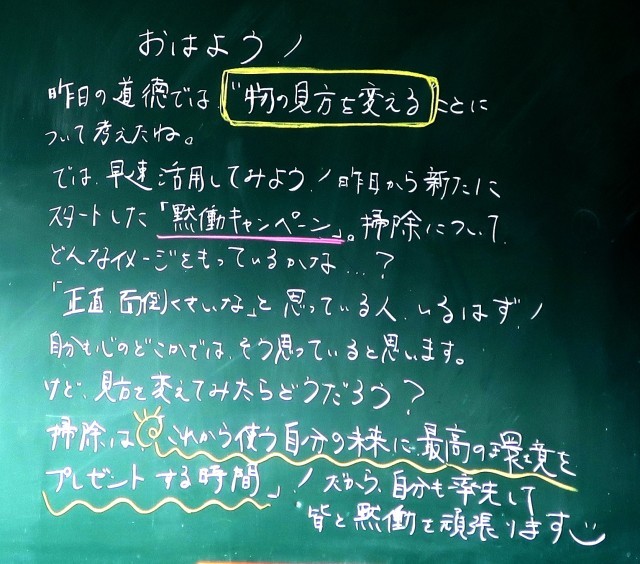 おはよう！
昨日の道徳では“物の見方を変えることに
ついて考えたね。
では、早速活用してみよう！昨日から新たに
スタートした「黙働キャンペーン」。掃除について
どんなイメージをもっているかな…？
「正直、面倒くさいな」と思っている人、いるはず！
自分も心のどこかでは、そう思っていると思います。
けど、見方を変えてみたらどうだろう？
掃除は「これから使う自分の未来に最高の環境を
プレゼントする時間」！だから、自分も率先して
皆と黙働を頑張ります